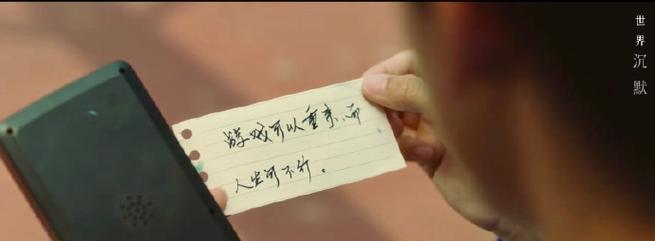 世界
沉默
游戏可以重来,而
人生可不行。